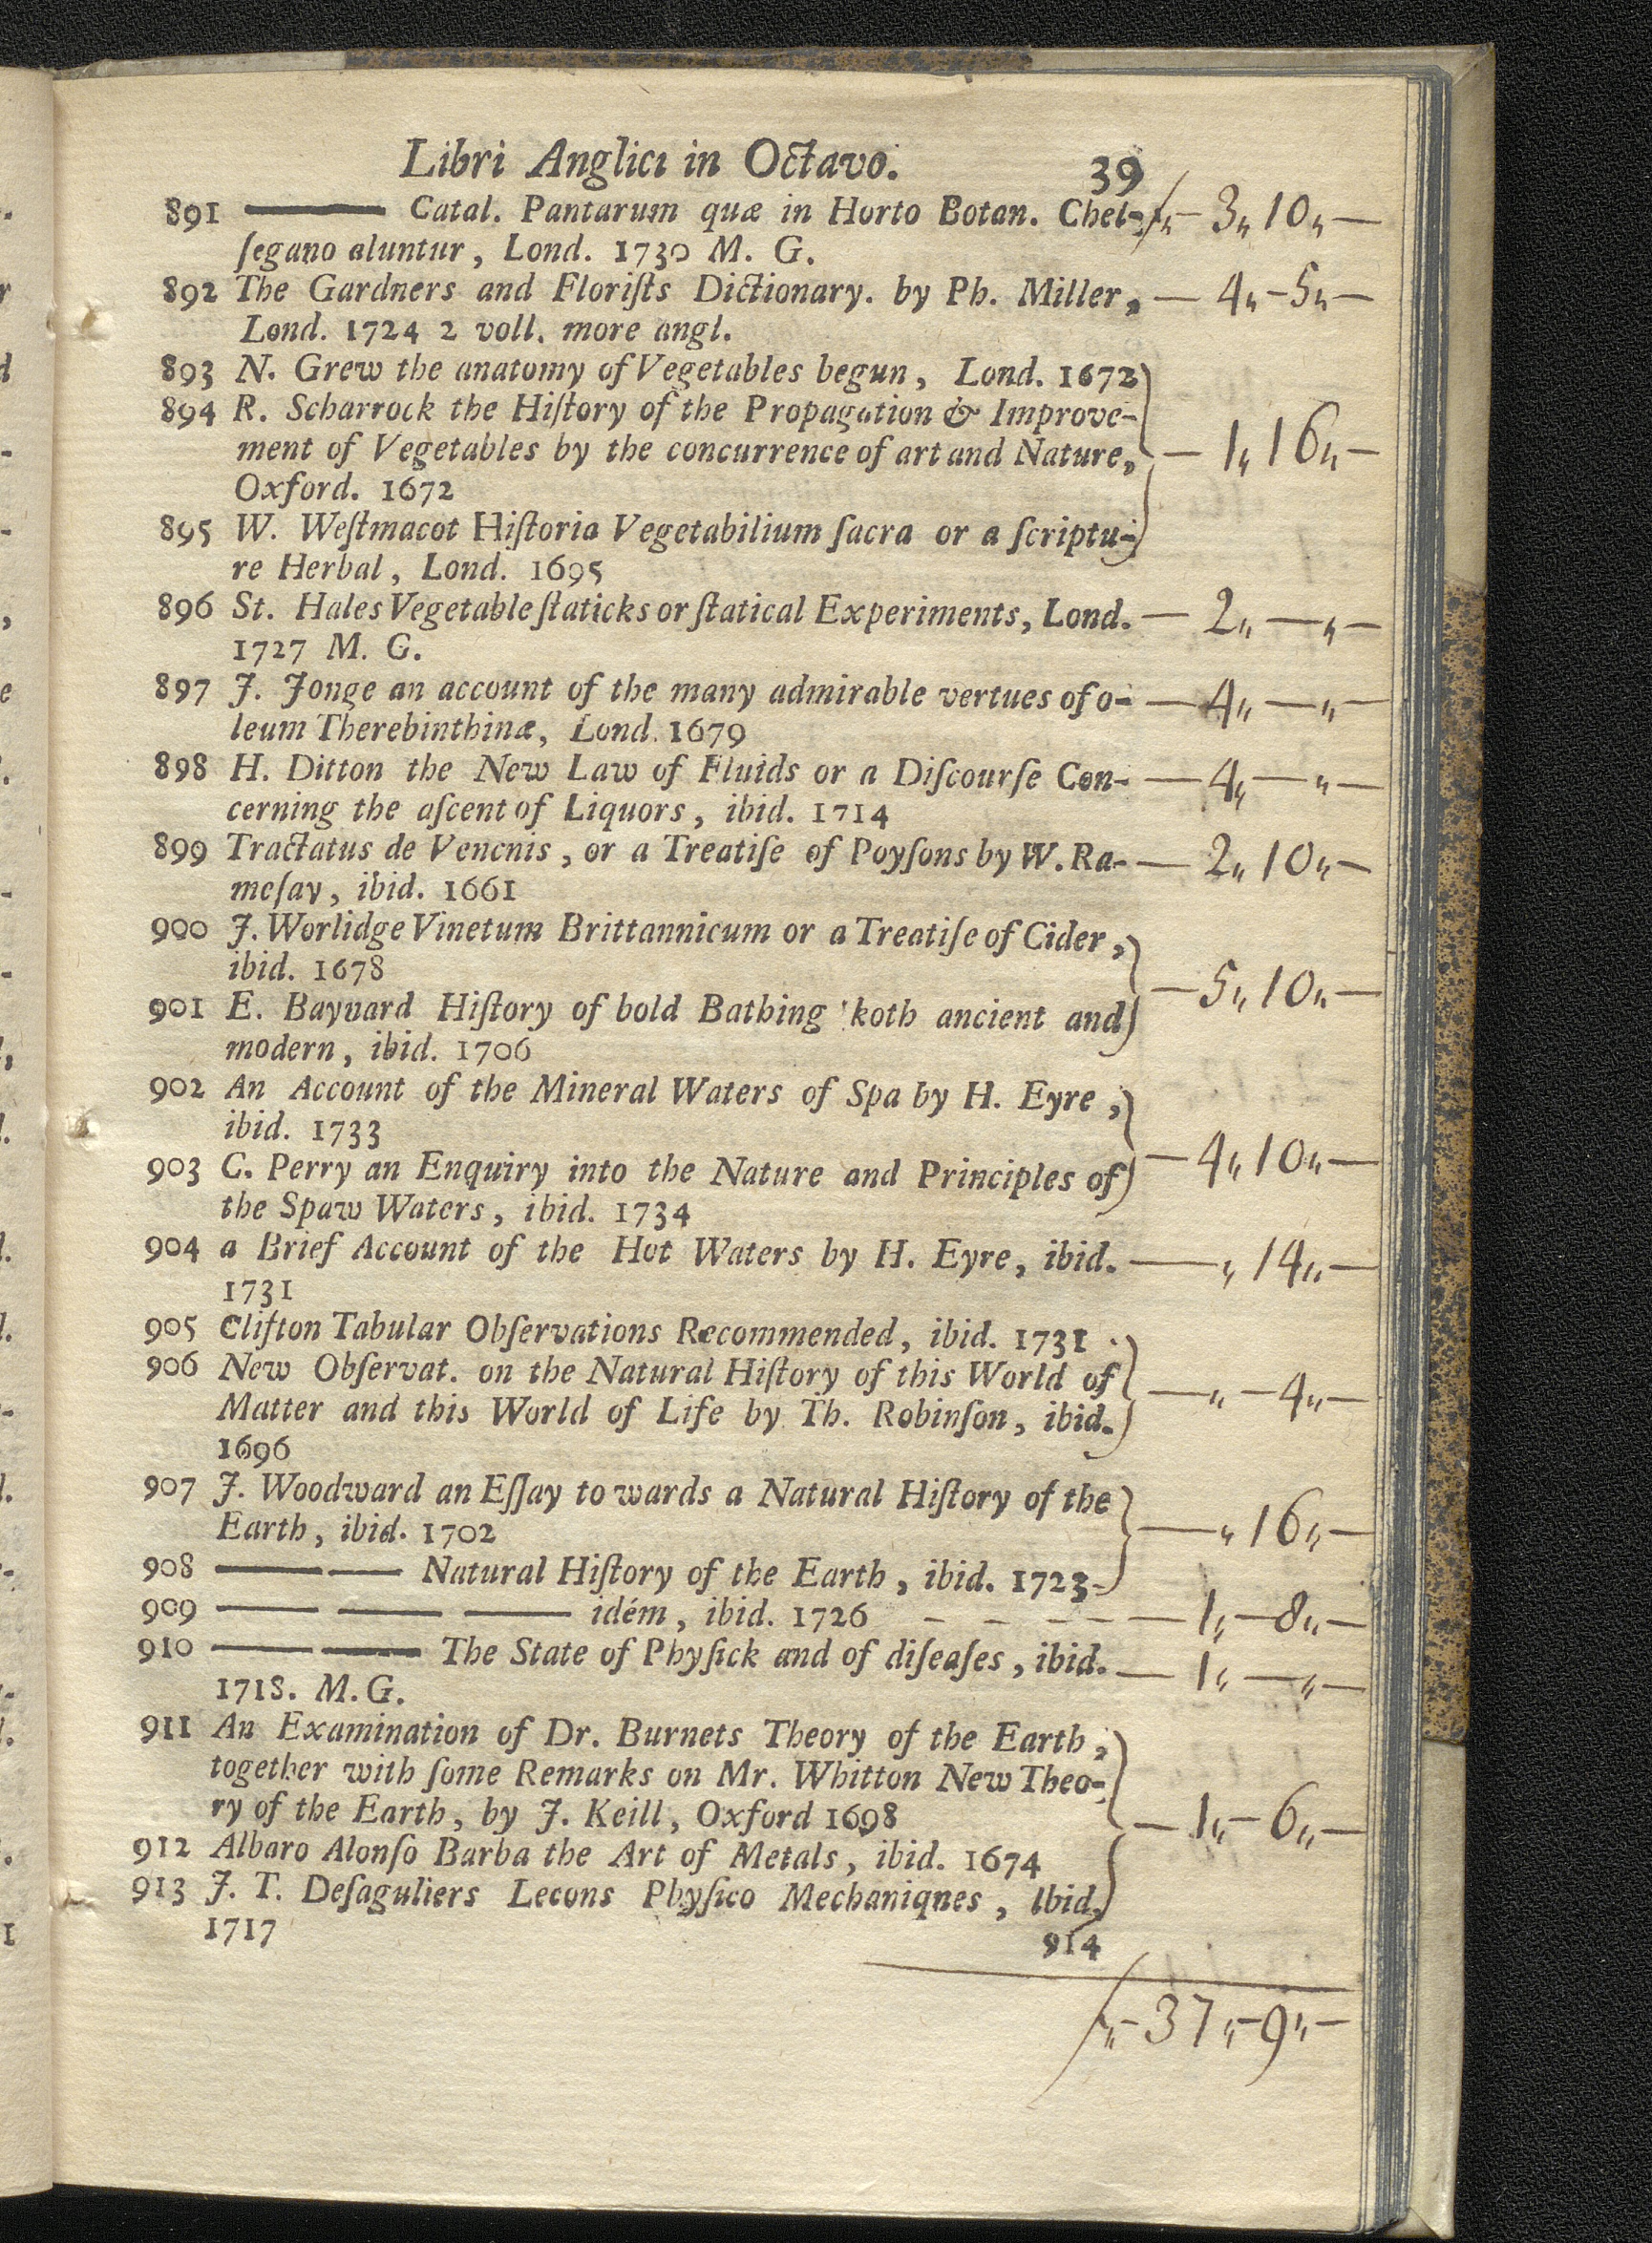 Libri Anglici in Octavo. 39
891 ——— Catal. Pantarum quæ in Horto Botan. Chel- ƒ„— 3„ 10„—
ſegano aluntur, Lond. 1730 M. G.
892 The Gardners and Floriſts Dictionary. by Ph. Miller, — 4„ — 5„ —
Lond. 1724 2 voll. more angl.
893 N. Grew the anatomy of Vegetables begun, Lond. 1672
894 R. Scharrock the Hiſtory of the Propagation & Improve-
ment of Vegetables by the concurrence of art and Nature, — 1„ 16„ —
Oxford. 1672
895 W. Weſtmacot Hiſtoria Vegetabilium ſacra or a ſcriptu-
re Herbal, Lond. 1695
896 St. Hales Vegetable ſtaticks or ſtatical Experiments, Lond. — 2„ — „ —
1727 M. G.
897 J. Jonge an account of the many admirable vertues of o- — 4„ — „ —
leum Therebinthinæ, Lond. 1679
898 H. Ditton the New Law of Fluids or a Diſcourſe Con- — 4„ — „ —
cerning the aſcent of Liquors, ibid. 1714
899 Tractatus de Venenis, or a Treatiſe of Poyſons by W. Ra- — 2„ 10„ —
meſay, ibid. 1661
900 J. Worlidge Vinetum Brittannicum or a Treatiſe of Cider,
ibid. 1678 — 5„ 10„ —
901 E. Baynard Hiſtory of bold Bathing koth ancient and
modern, ibid. 1706
902 An Account of the Mineral Waters of Spa by H. Eyre,
ibid. 1733 — 4„ 10„ —
903 C. Perry an Enquiry into the Nature and Principles of
the Spaw Waters, ibid. 1734
904 a Brief Account of the Hot Waters by H. Eyre, ibid. — „ 14„ —
1731
905 Clifton Tabular Obſervations Recommended, ibid. 1731
906 New Obſervat. on the Natural Hiſtory of this World of — „ — 4„ —
Matter and this World of Life by Th. Robinſon, ibid.
1696
907 J. Woodward an Eſſay to wards a Natural Hiſtory of the
Earth, ibid. 1702 — „ 16„ —
908 —— —— Natural Hiſtory of the Earth, ibid. 1723
909 —— —— —— idém, ibid. 1726 — — — — 1„ — 8„ —
910 —— —— The State of Phyſick and of diſeaſes, ibid. — 1„ — „ —
1718. M. G.
911 An Examination of Dr. Burnets Theory of the Earth,
together with ſome Remarks on Mr. Whitton New Theo-
ry of the Earth, by J. Keill, Oxford 1698 — 1„ — 6„ —
912 Albaro Alonſo Barba the Art of Metals, ibid. 1674
913 J. T. Deſaguliers Lecons Phyſico Mechaniqnes, Ibid,
1717 914
ƒ„— 37„ — 9„ —